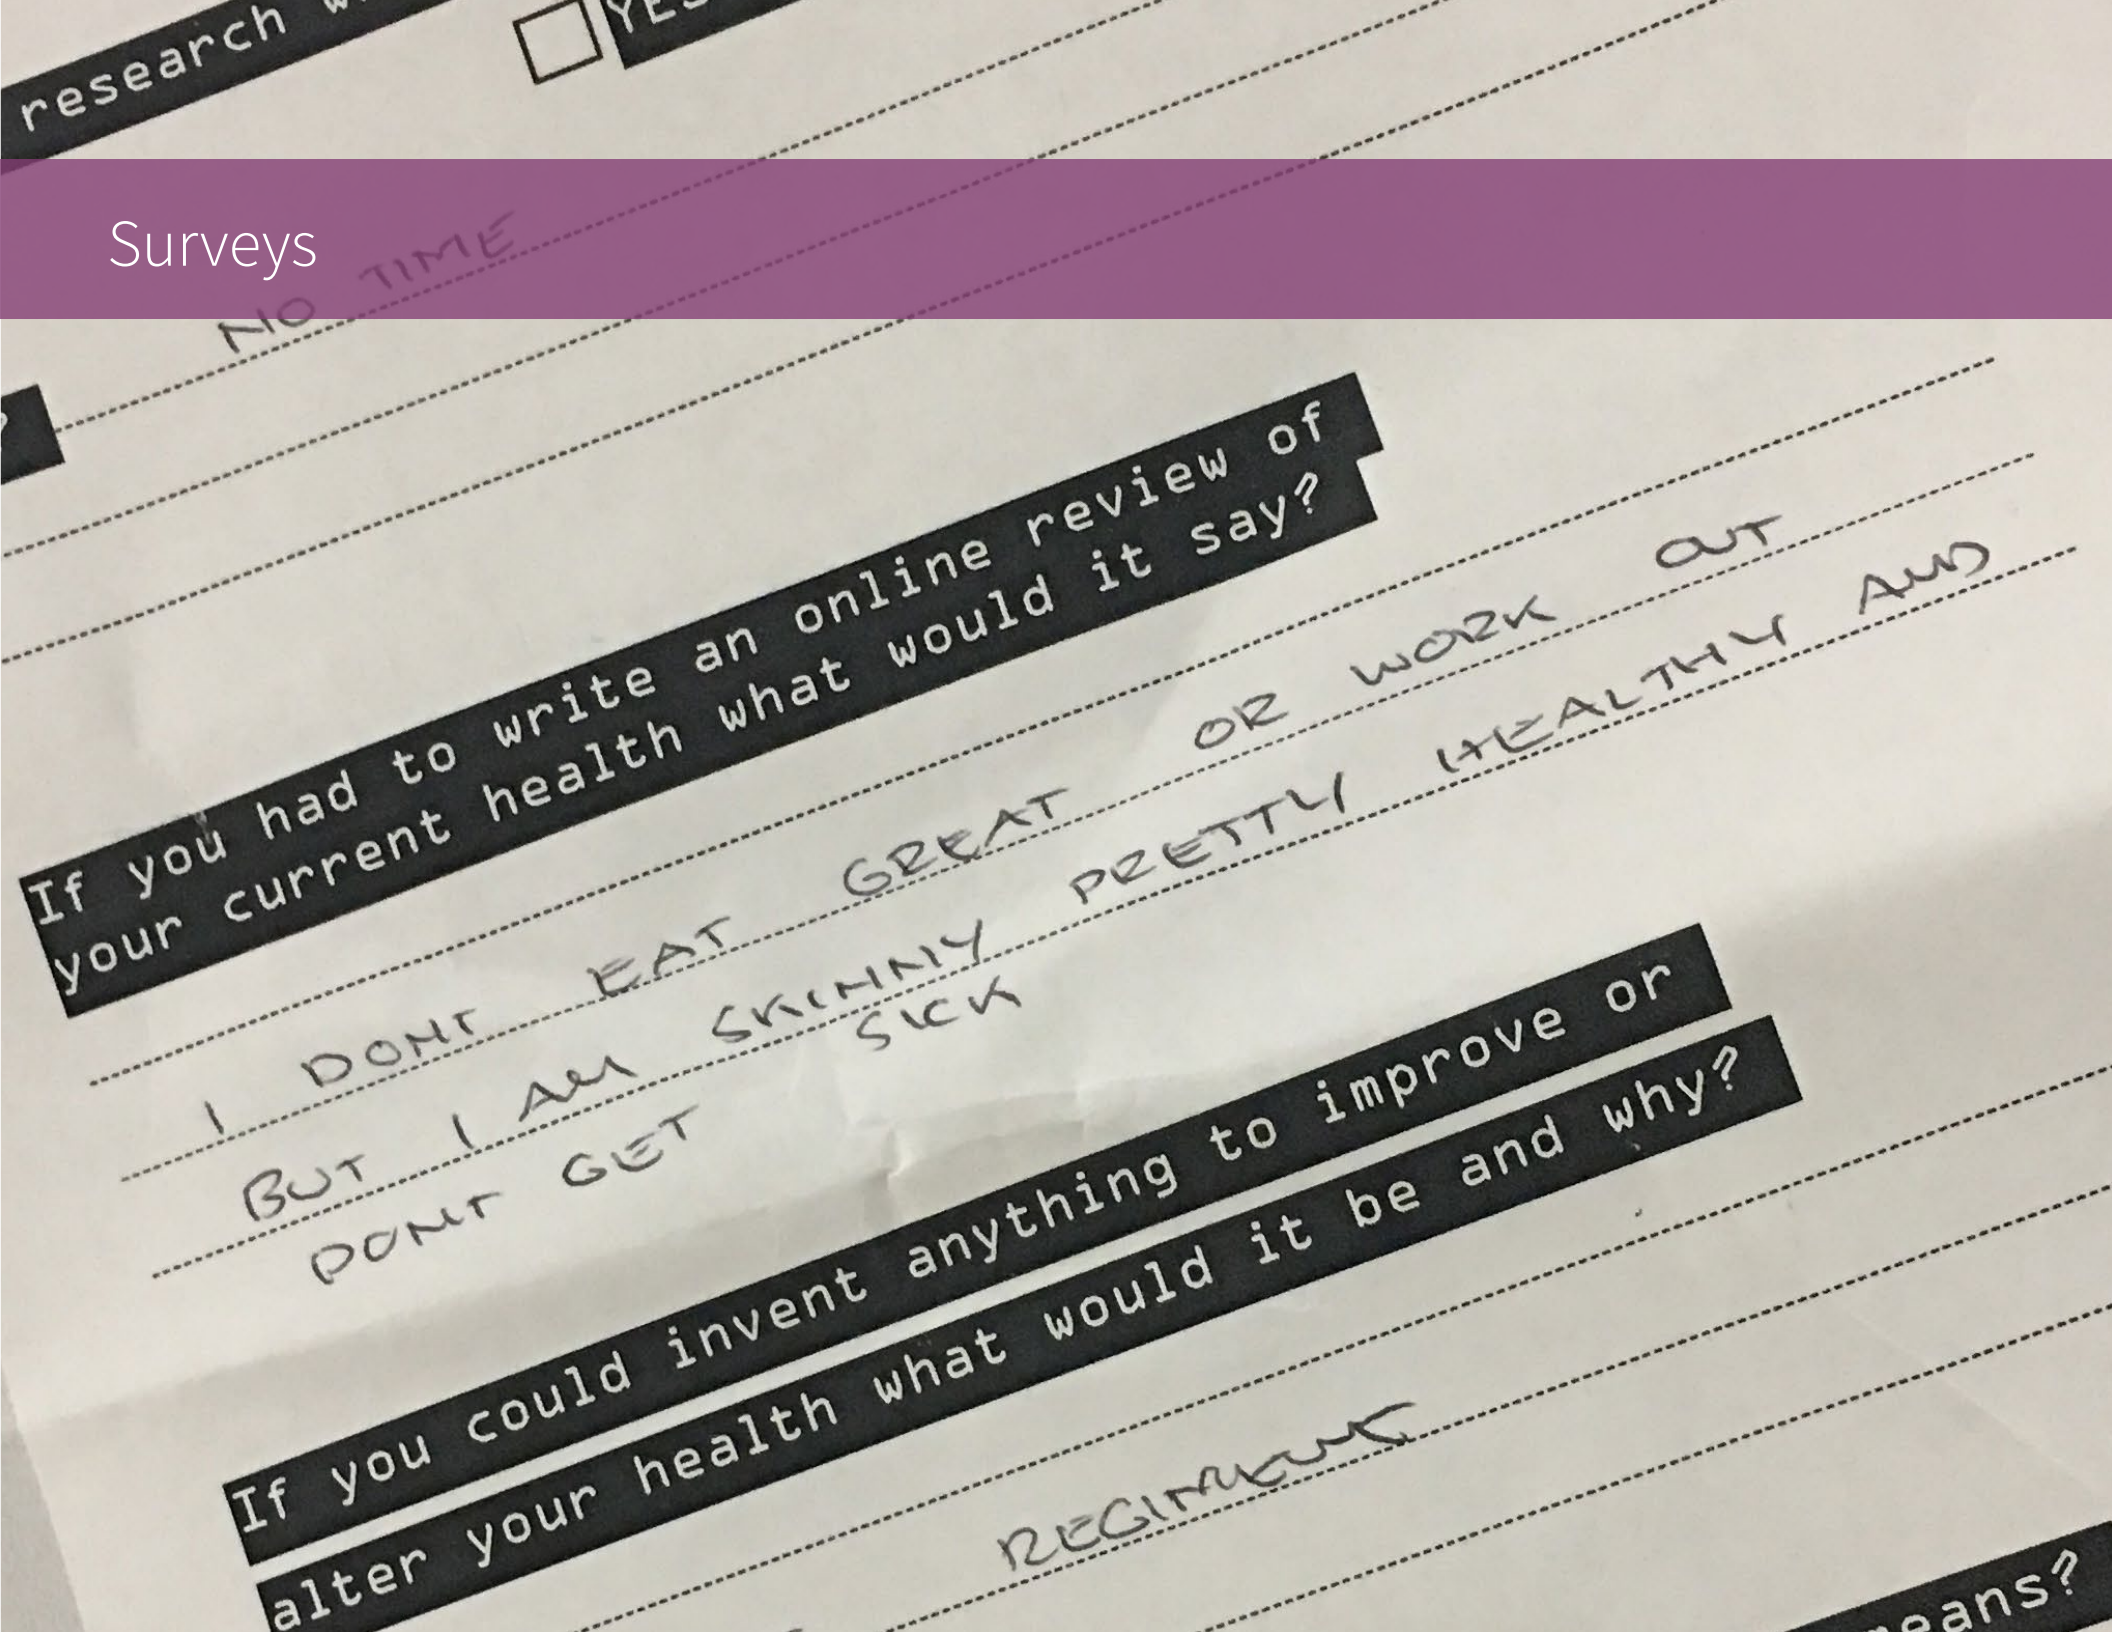 research
YES
Surveys
NO TIME
?
If you had to write an online review of
your current health what would it say?
I DONT EAT GREAT OR WORK OUT
BUT I AM SKINNY PRETTLY HEALTHY AND
DONT GET SICK
If you could invent anything to improve or
alter your health what would it be and why?
REGIMENT
means?